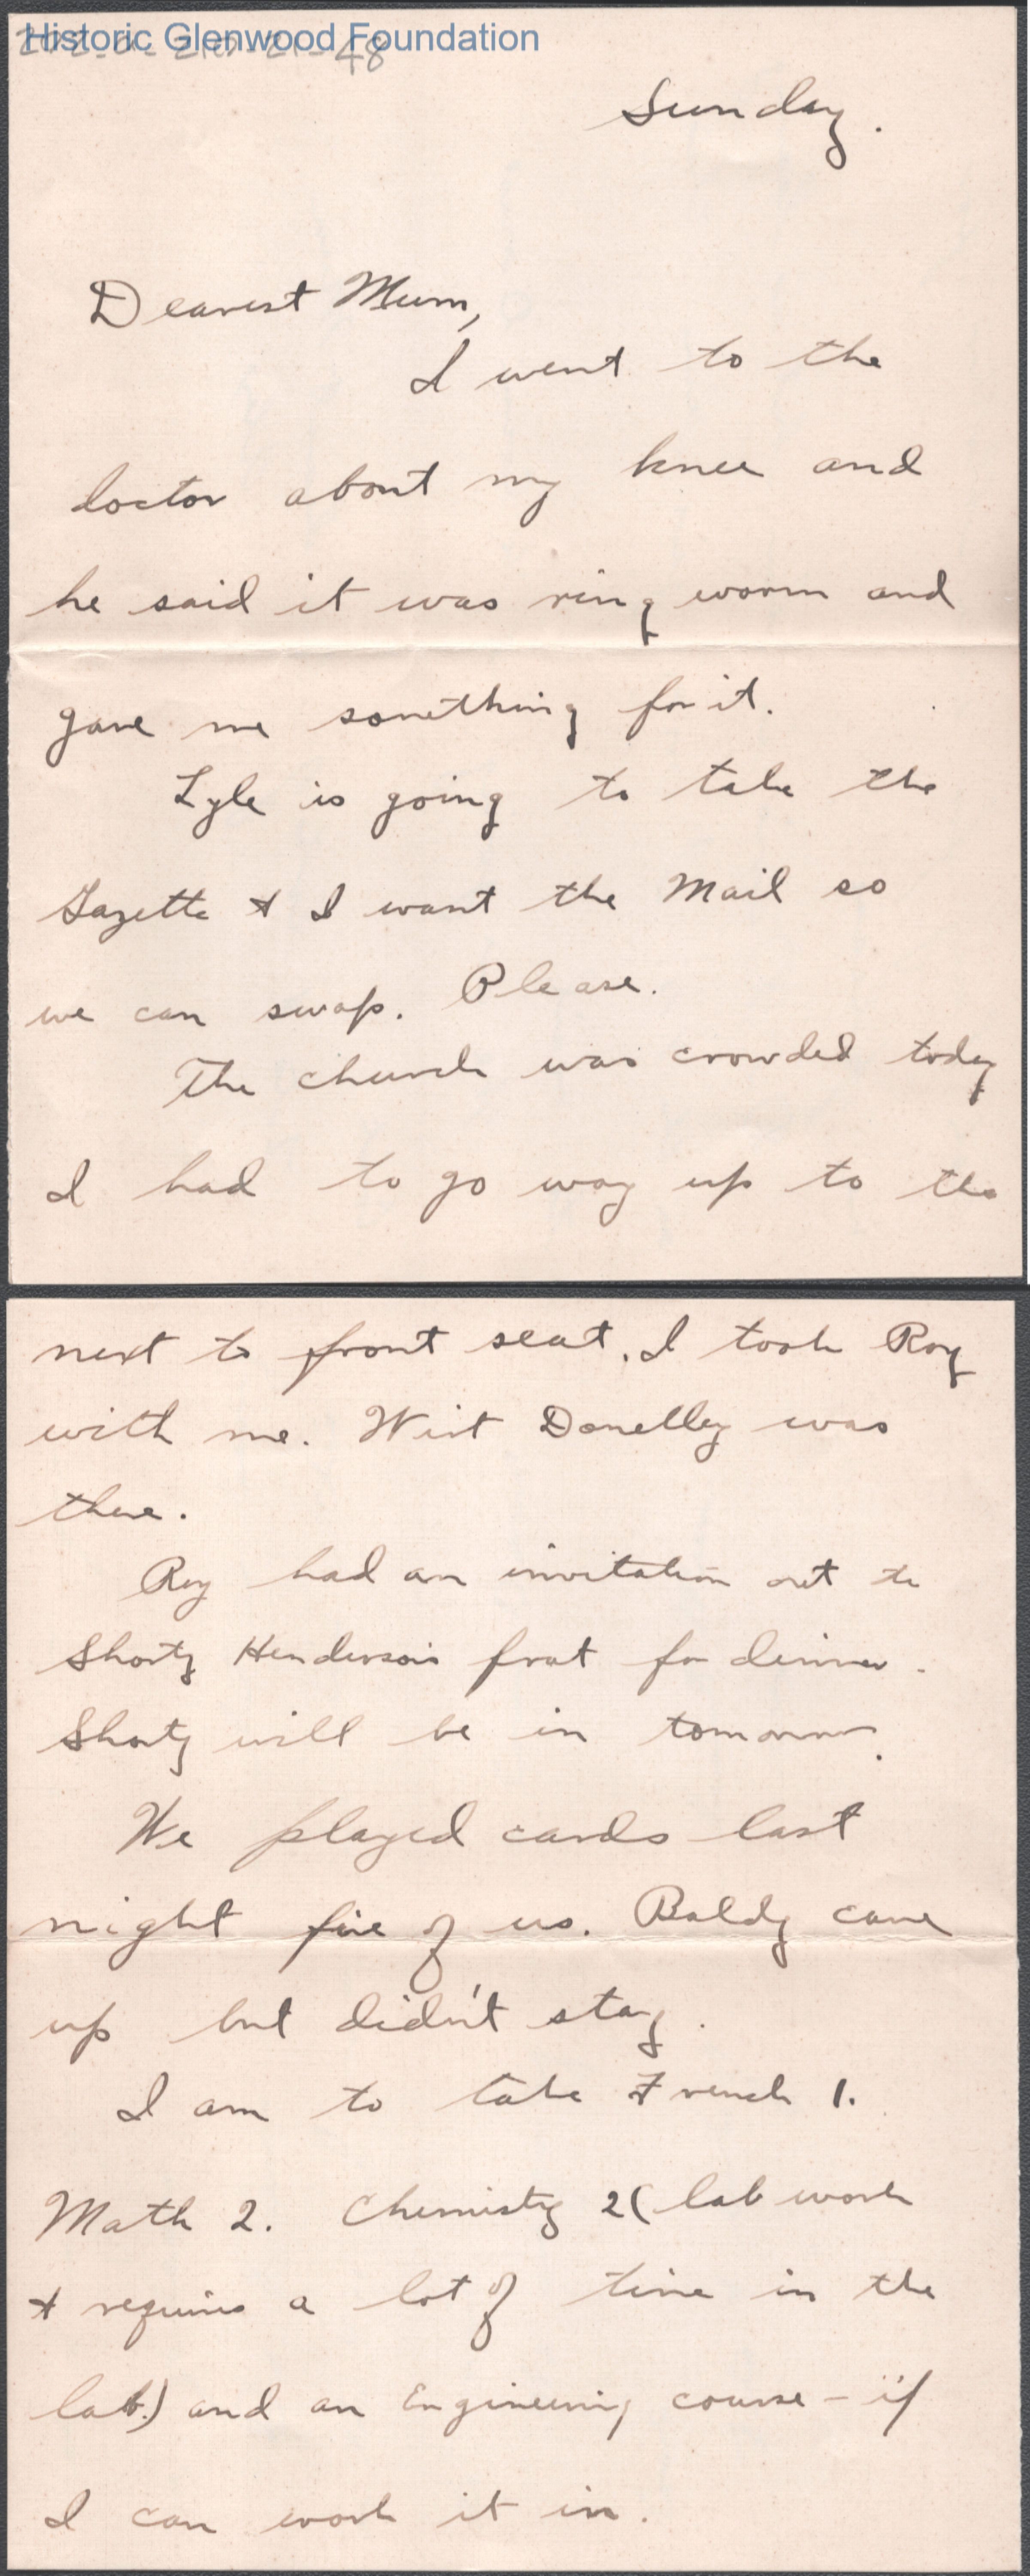 Historic Glenwood Foundation
Sunday.
Dearest Mum,
I went to the
doctor about my knee and
he said it was ring worm and
gave me something for it.
Lyle is going to take the
Gazette & I want the Mail so
we can swap. Please.
The church was crowded today
I had to go way up to the
next to front seat. I took Roy
with me. Wirt Donelley was
there.
Roy had an invitation out to
Shorty Henderson's frat for dinner.
Shorty will be in tomorrow.
We played cards last
night five of us. Baldy came
up but didn't stay.
I am to take French 1.
Math 2. Chemistry 2 (lab work
& requires a lot of time in the
lab.) and an Engineering course - if
I can work it in.